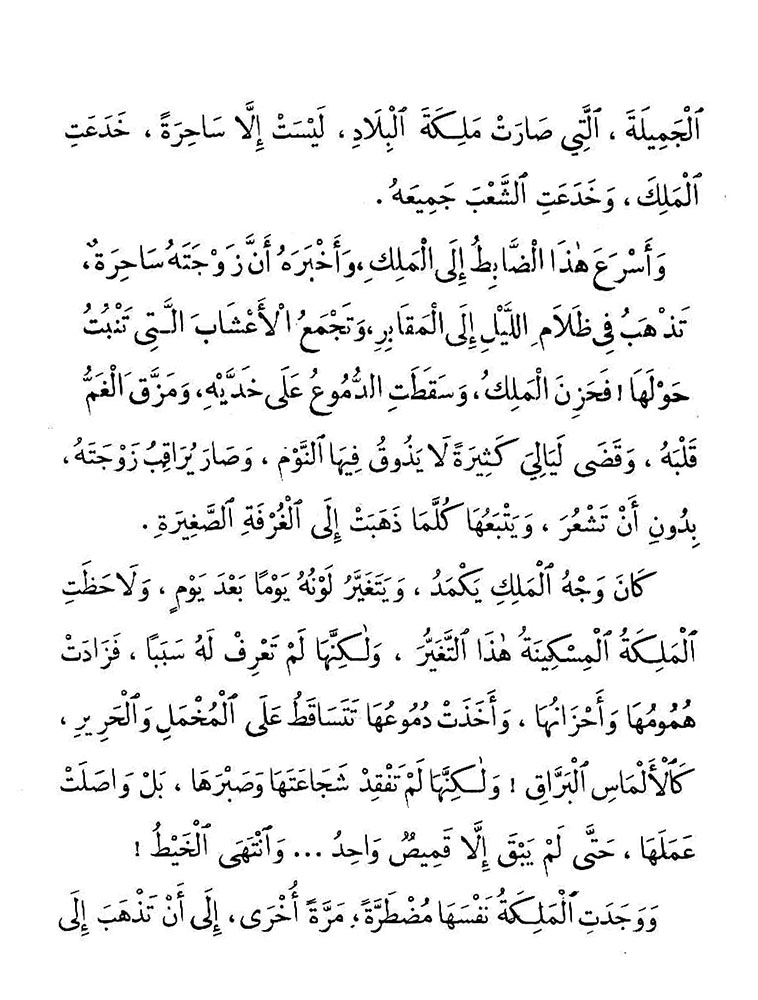 ٱلْجَمِيلَةَ ، ٱلَّتِي صَارَتْ مَلِكَةَ ٱلْبِلَادِ ، لَيْسَتْ إِلَّا سَاحِرَةً ، خَدَعَتِ
ٱلْمَلِكَ ، وَخَدَعَتِ ٱلشَّعْبَ جَمِيعَهُ .
وَأَسْرَعَ هٰذَا ٱلضَّابِطُ إِلَى ٱلْمَلِكِ ، وَأَخْبَرَهُ أَنَّ زَوْجَتَهُ سَاحِرَةٌ ،
تَذْهَبُ فِى ظَلَامِ اللَّيْلِ إِلَى الْمَقَابِرِ ، وَتَجْمَعُ الْأَعْشَابَ الَّتِى تَنْبُتُ
حَوْلَهَا ! فَحَزِنَ الْمَلِكُ ، وَسَقَطَتِ الدُّمُوعُ عَلَى خَدَّيْهِ ، وَمَزَّقَ ٱلْغَمُّ
قَلْبَهُ ، وَقَضَى لَيَالِيَ كَثِيرَةً لَا يَذُوقُ فِيهَا ٱلنَّوْمَ ، وَصَارَ يُرَاقِبُ زَوْجَتَهُ ،
بِدُونِ أَنْ تَشْعُرَ ، وَيَتْبَعُهَا كُلَّمَا ذَهَبَتْ إِلَى ٱلْغُرْفَةِ ٱلصَّغِيرَةِ .
كَانَ وَجْهُ ٱلْمَلِكِ يَكْمَدُ ، وَيَتَغَيَّرُ لَوْنُهُ يَوْمًا بَعْدَ يَوْمٍ ، وَلَاحَظَتِ
ٱلْمَلِكَةُ ٱلْمِسْكِينَةُ هٰذَا ٱلتَّغَيُّرَ ، وَلٰكِنَّهَا لَمْ تَعْرِفْ لَهُ سَبَبًا ، فَزَادَتْ
هُمُومُهَا وَأَحْزَانُهَا ، وَأَخَذَتْ دُمُوعُهَا تَتَسَاقَطُ عَلَى ٱلْمُخْمَلِ وَٱلْحَرِيرِ ،
كَٱلْأَلْمَاسِ ٱلْبَرَّاقِ ! وَلٰكِنَّهَا لَمْ تَفْقِدْ شَجَاعَتَهَا وَصَبْرَهَا ، بَلْ وَاصَلَتْ
عَمَلَهَا ، حَتَّى لَمْ يَبْقَ إِلَّا قَمِيصٌ وَاحِدُ ... وَٱنْتَهَى ٱلْخَيْطُ !
وَوَجَدَتِ ٱلْمَلِكَةُ نَفْسَهَا مُضْطَرَّةً ، مَرَّةً أُخْرَى ، إِلَى أَنْ تَذْهَبَ إِلَى